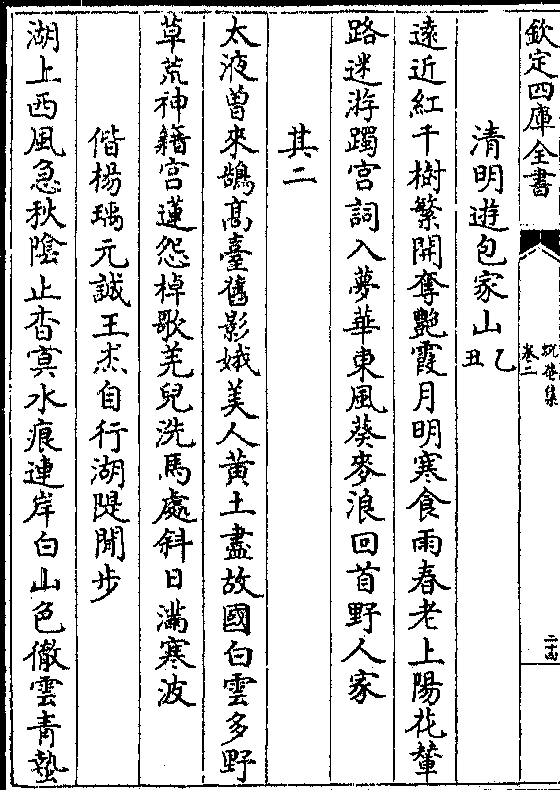 欽定四庫全書
卷二
清明遊包家山乙丑
遠近紅千樹繁開奪艷霞月明寒食雨春老上陽花輦
路迷游躅宮詞入夢華東風葵麥浪回首野人家
其二
太液曽來鵠髙臺舊影娥美人黄土盡故國白雲多野
草荒神籍宮蓮怨棹歌羌兒洗馬處斜日滿寒波
偕楊瑀元誠王杰自行湖隄閒步
湖上西風急秋陰止杳冥水痕連岸白山色徹雲青蟄